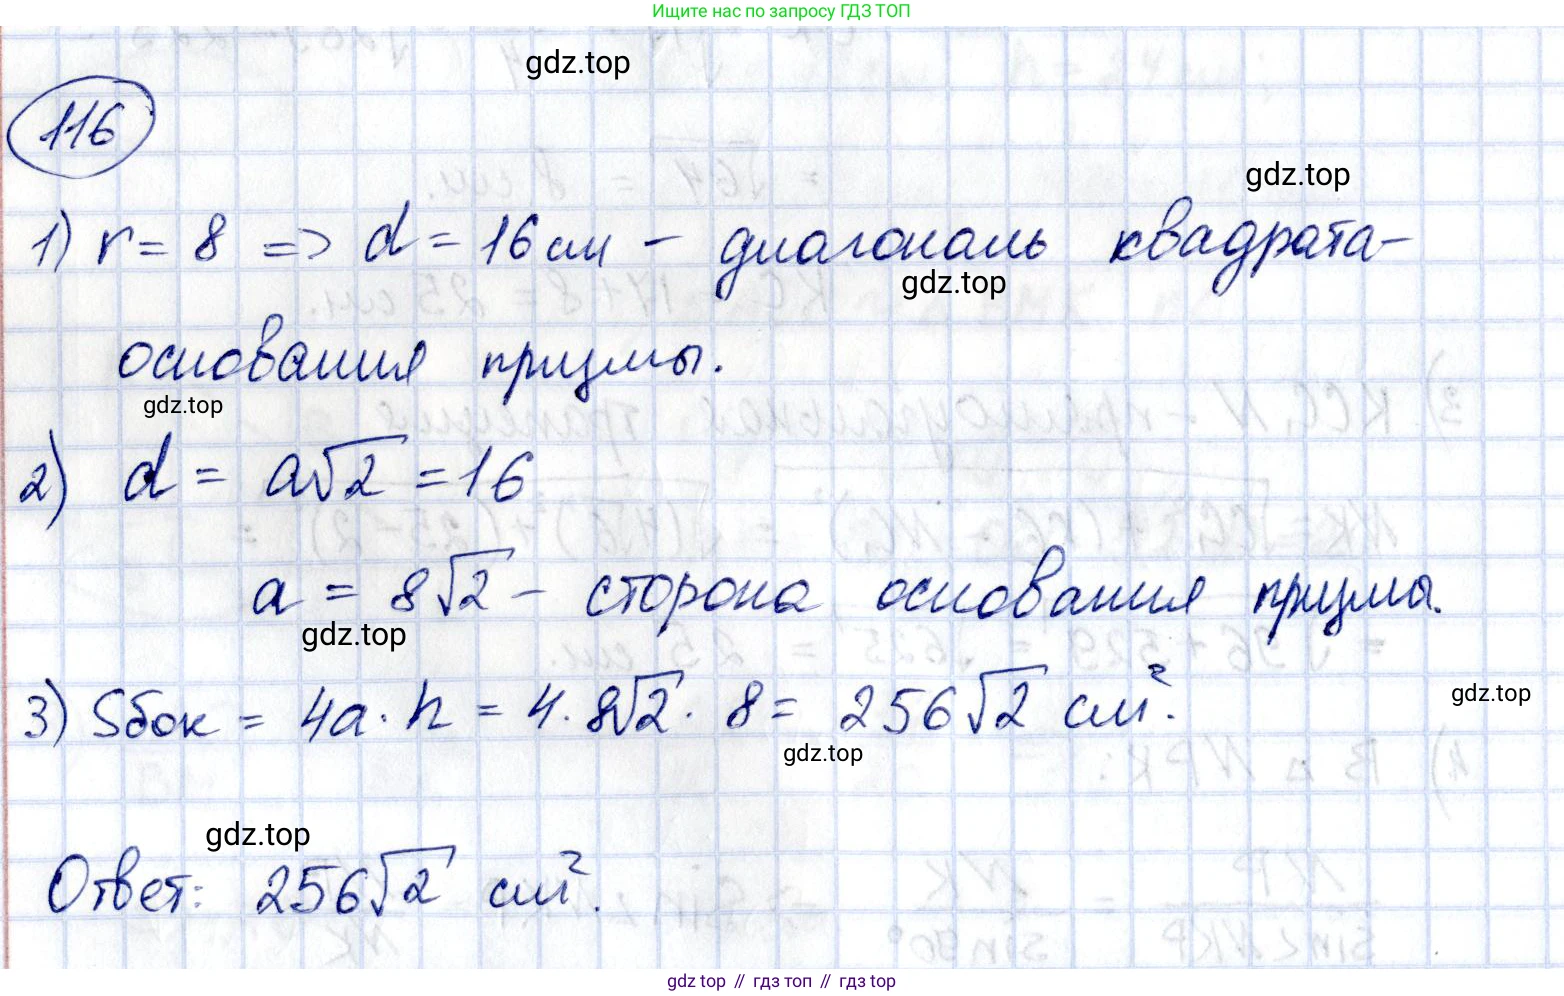 Ищите нас по запросу ГДЗ ТОП
gdz.top
116
gdz.top
1) r = 8 => d = 16 см - диагональ квадрата-
gdz.top
основания призмы.
gdz.top
2) d = a√2 = 16
a = 8√2 - сторона основания призмы.
gdz.top
3) Sбок = 4a · h = 4 · 8√2 · 8 = 256√2 см².
gdz.top
gdz.top
gdz.top
Ответ: 256√2 см².
gdz.top // гдз топ // гдз.top